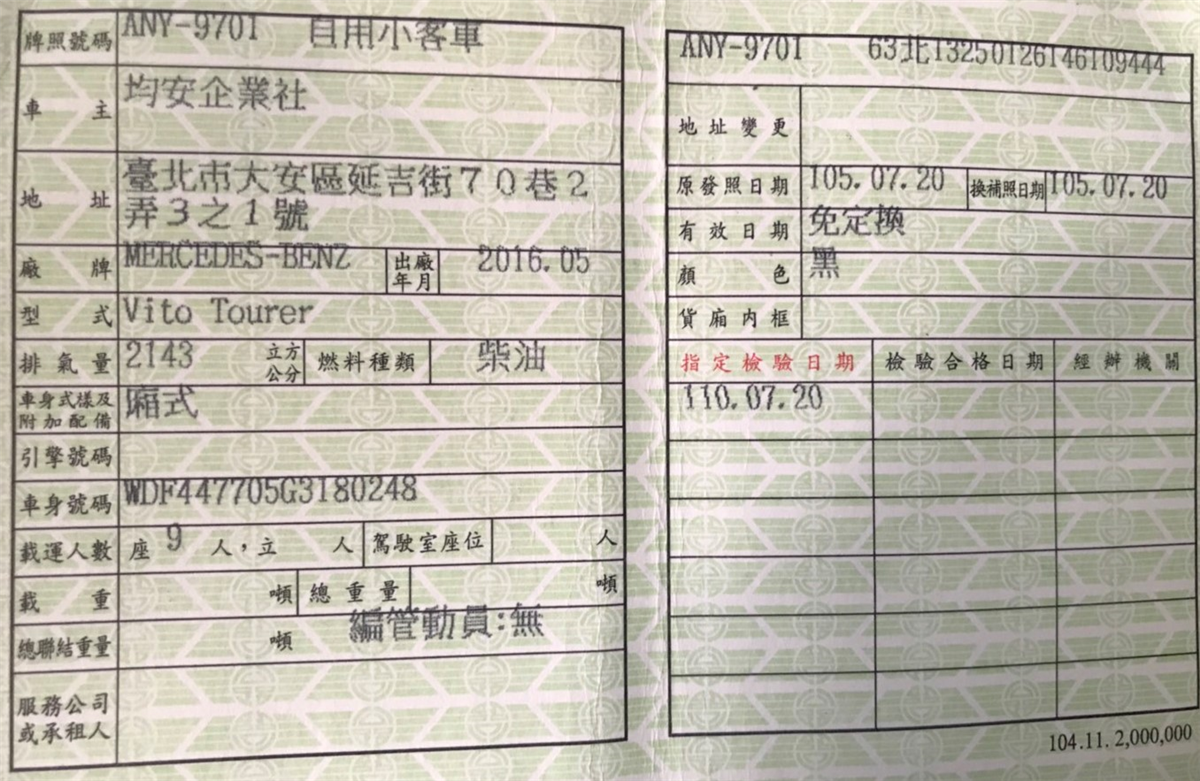 牌照號碼 ANY-9701 自用小客車
車主 均安企業社
地址 臺北市大安區延吉街70巷2
弄3之1號
廠牌 MERCEDES-BENZ 出廠年月 2016.05
型式 Vito Tourer
排氣量 2143 立方公分 燃料種類 柴油
車身式樣及附加配備 廂式
引擎號碼
車身號碼 WDF447705G3180248
載運人數 座 9 人，立 人 駕駛室座位 人
載重 噸 總重量 噸
總聯結重量 噸 編管動員:無
服務公司或承租人
ANY-9701 63北13250126146109444
地址變更
原發照日期 105.07.20 換補照日期 105.07.20
有效日期 免定換
顏色 黑
貨廂內框
指定檢驗日期 檢驗合格日期 經辦機關
110.07.20
104.11. 2,000,000